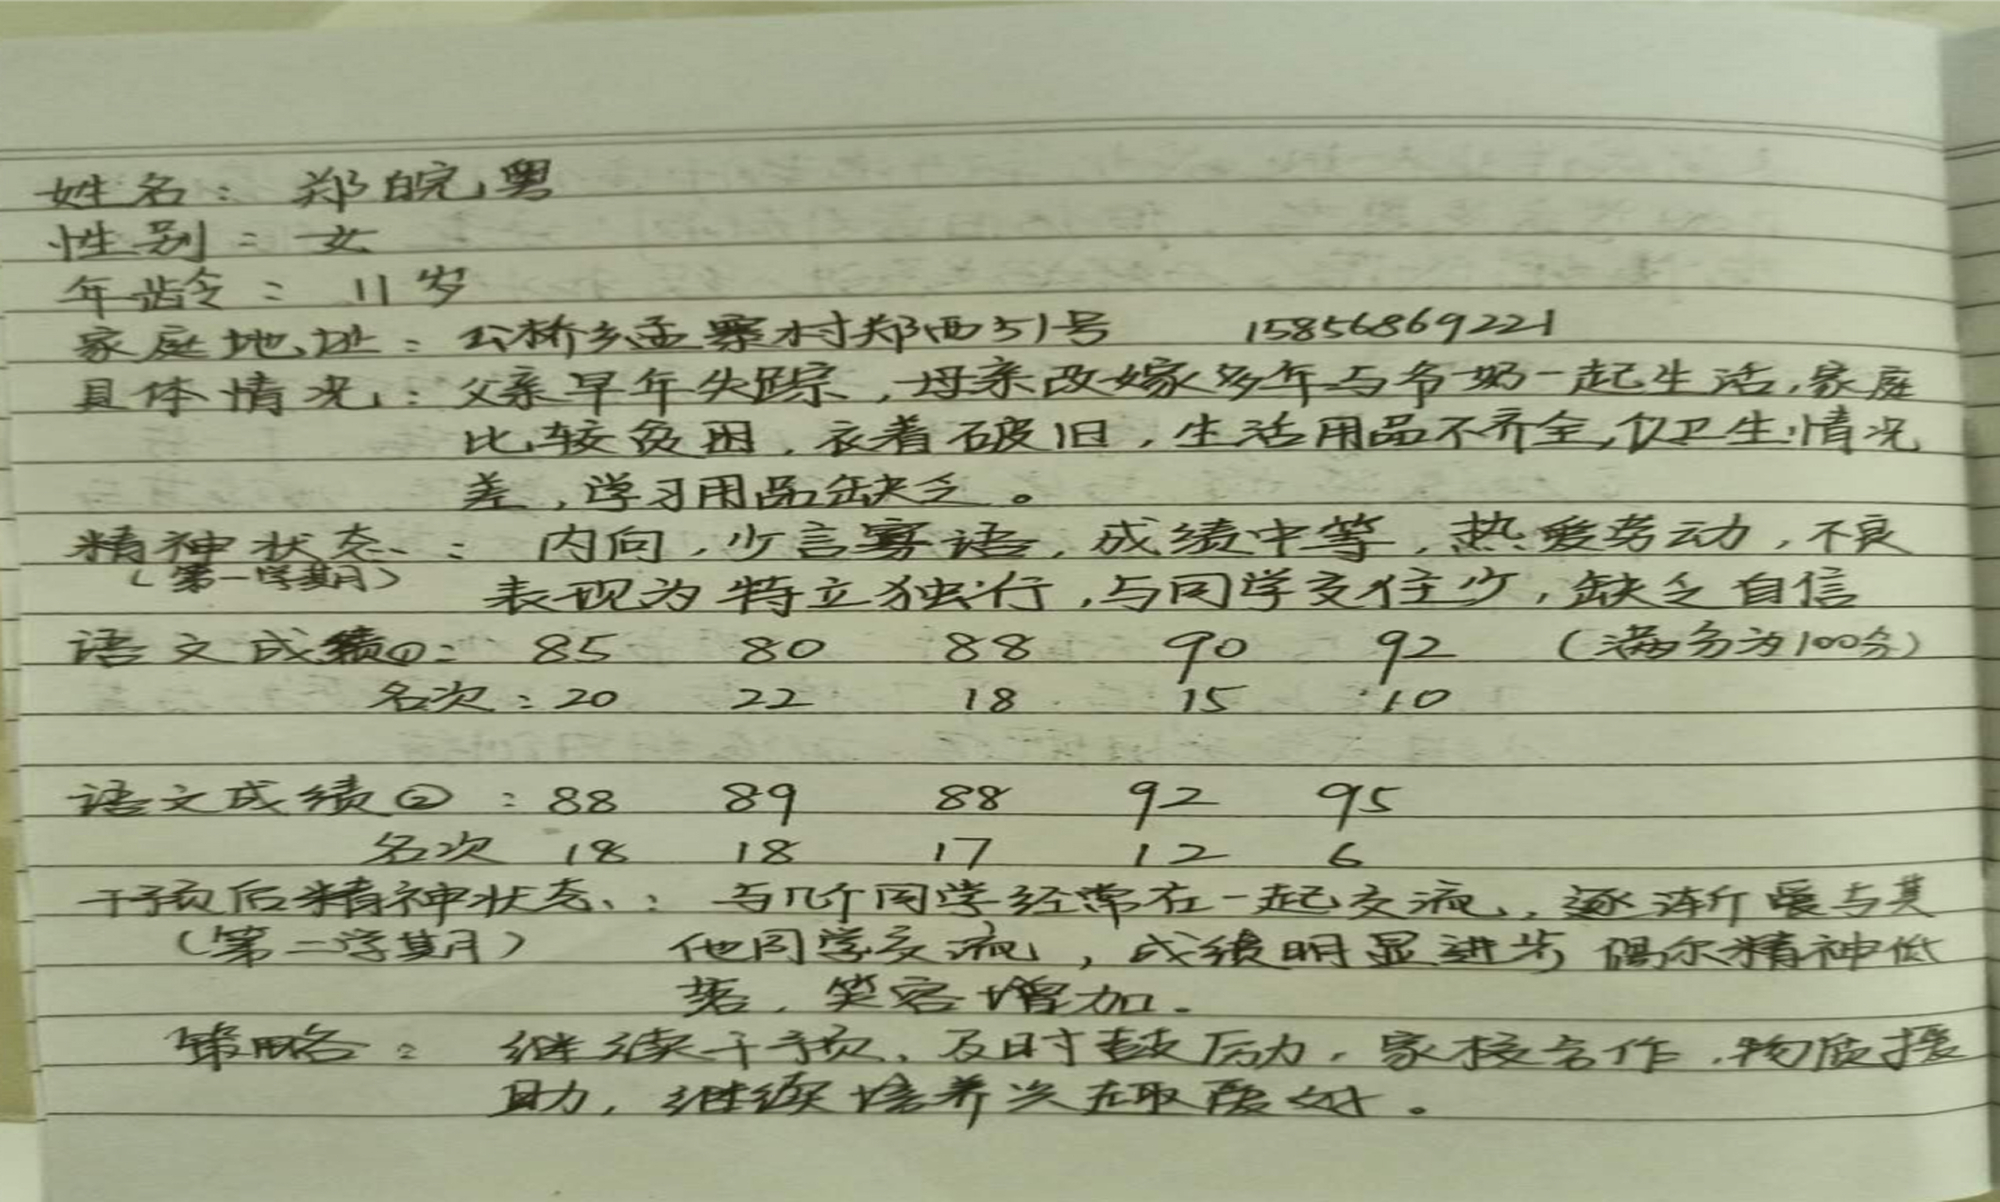 姓名：郑皖粤
性别：女
年龄：11岁
家庭地址：公桥乡孟寨村郑西51号 15856869221
具体情况：父亲早年失踪，母亲改嫁多年与爷奶一起生活，家庭
比较贫困，衣着破旧，生活用品不齐全，仅卫生情况
差，学习用品缺乏。
精神状态：内向，少言寡语，成绩中等，热爱劳动，不良
（第一学期） 表现为特立独行，与同学交往少，缺乏自信
语文成绩①：85 80 88 90 92 （满分为100分）
名次：20 22 18 15 10
语文成绩②：88 89 88 92 95
名次 18 18 17 12 6
干预后精神状态：与几个同学经常在一起交流，逐渐愿与其
（第二学期） 他同学交流，成绩明显进步 偶尔精神低
落，笑容增加。
策略：继续干预，及时鼓励，家校合作，物质援
助，继续培养兴趣爱好。